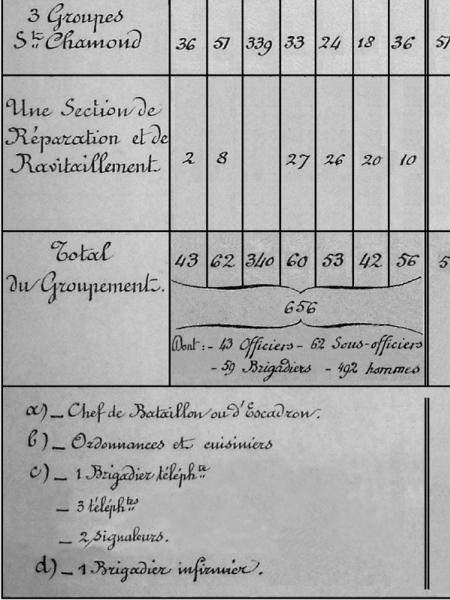 3 Groupes
Sts Chamond 36 51 339 33 24 18 36 51
Une Section de
Réparation et de
Ravitaillement 2 8 27 26 20 10
Total
du Groupement. 43 62 340 60 53 42 56 5
656
Dont :- 43 Officiers - 62 Sous-officiers
- 59 Brigadiers - 492 hommes
a) _ Chef de Bataillon ou d'Escadron.
b) _ Ordonnances et cuisiniers
c) _ 1 Brigadier téléphte
_ 3 téléphtes
_ 2 signaleurs.
d) _ 1 Brigadier infirmier.